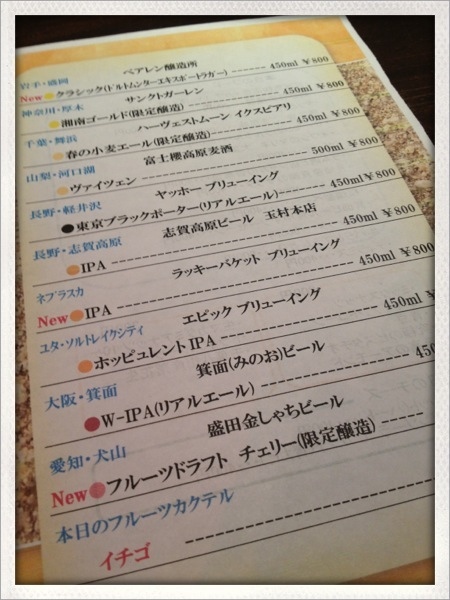 岩手・盛岡
ベアレン醸造所
New クラシック(ドルトムンターエキスポートラガー) ------- 450ml ¥800
神奈川・厚木
サンクトガーレン
湘南ゴールド(限定醸造) ------- 450ml ¥800
千葉・舞浜
ハーヴェストムーン イクスピアリ
春の小麦エール(限定醸造) ------- 450ml ¥800
山梨・河口湖
富士櫻高原麦酒
ヴァイツェン ------- 500ml ¥800
長野・軽井沢
ヤッホー ブリューイング
東京ブラックポーター(リアルエール) ------- 450ml ¥800
長野・志賀高原
志賀高原ビール 玉村本店
IPA ------- 450ml ¥800
ネブラスカ
ラッキーバケット ブリューイング
New IPA ------- 450ml ¥800
ユタ・ソルトレイクシティ
エピック ブリューイング
ホッピュレント IPA ------- 450ml ¥
大阪・箕面
箕面(みのお)ビール
W-IPA(リアルエール) -------
愛知・犬山
盛田金しゃちビール
New フルーツドラフト チェリー(限定醸造) ------
本日のフルーツカクテル
イチゴ -------